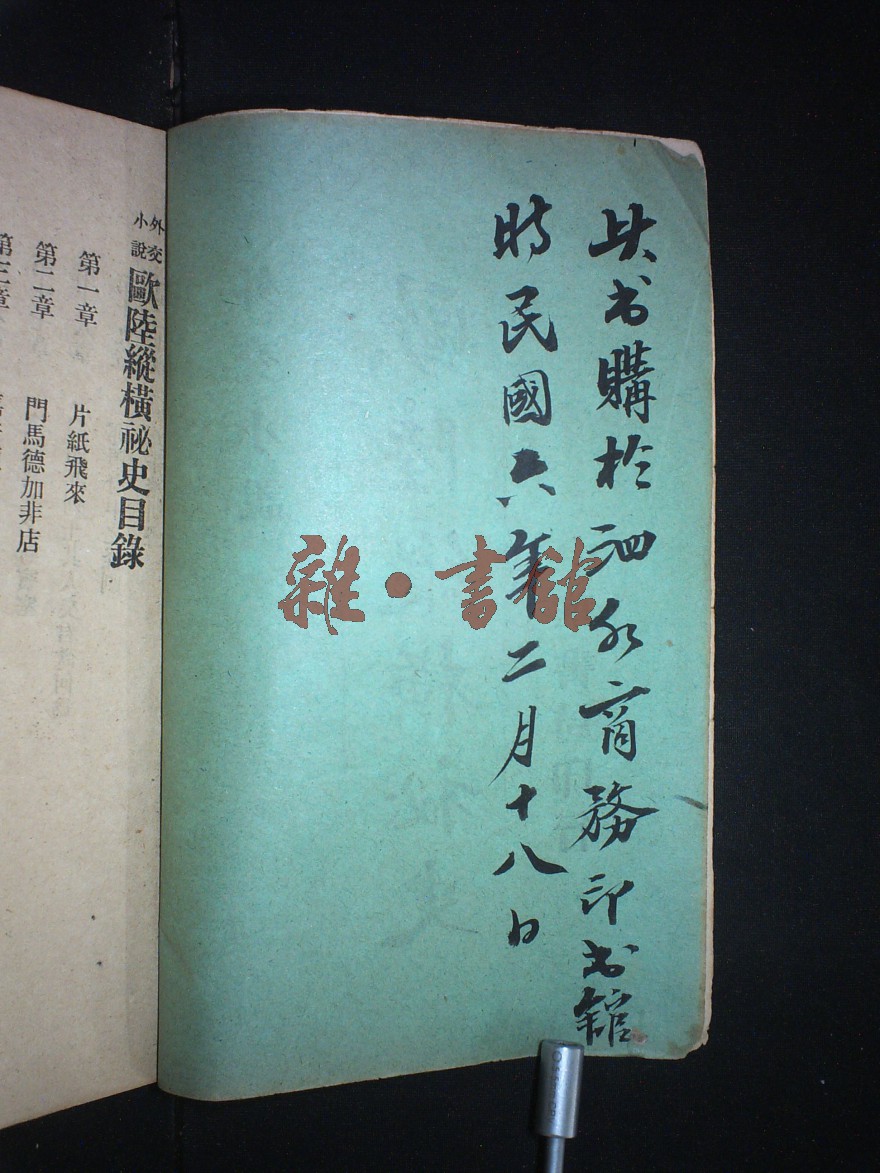 此书購於泗水商務印书館
時民國六年二月十八日
外交小說
歐陸縱橫祕史目錄
第一章 片紙飛來
第二章 門馬德加非店
第三章
雜·書館